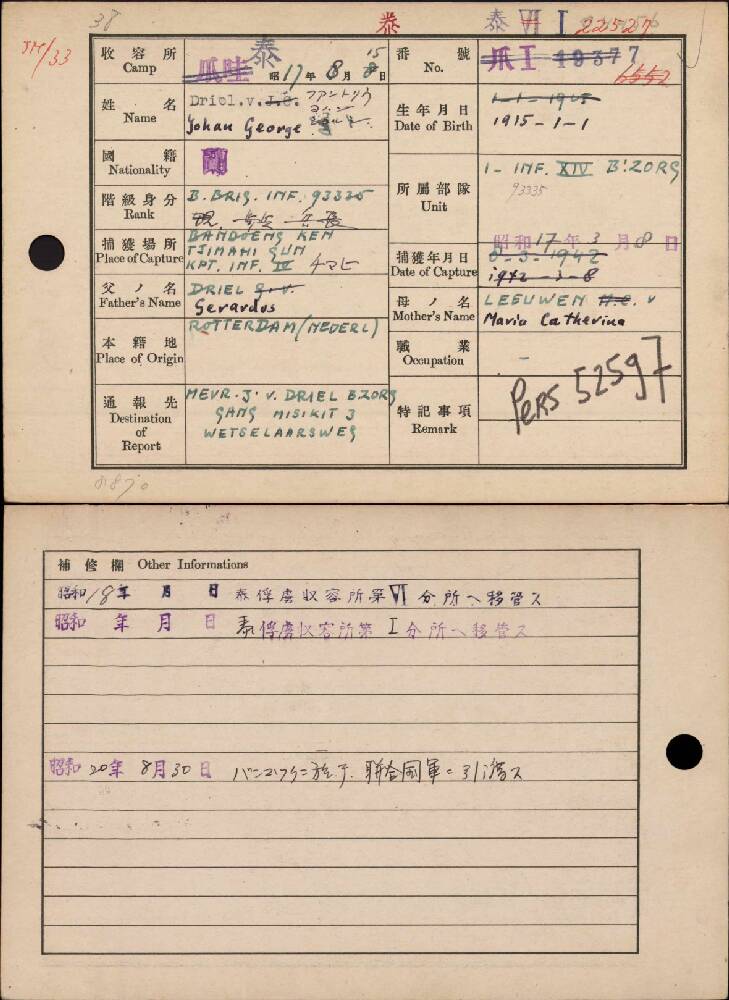 38
泰
泰 VI I 22527
JM/33
收容所 Camp 泰 爪哇 昭17年8月15日
番號 No. 爪I 19377
6552
姓名 Name Driel.v.J.G. ファン・ドリウ
Johan George ヨハン
生年月日 Date of Birth 1-1-1915
1915-1-1
國籍 Nationality 蘭
階級身分 Rank B.BRIG. INF. 93335
現 歩兵 兵長
所屬部隊 Unit I- INF. XIV B'ZORG
93335
捕獲場所 Place of Capture BANDOENG KEM
TJIMAHI GUN
KPT. INF. IV チマヒ
捕獲年月日 Date of Capture 昭和17年3月8日
8-3-1942
1942-3-8
父ノ名 Father's Name DRIEL G.v.
Gerardus
母ノ名 Mother's Name LEEUWEN H.C. v
Maria Catherina
本籍地 Place of Origin ROTTERDAM (NEDERL)
職業 Occupation -
通報先 Destination of Report MEVR. J. v. DRIEL BZORG
GANG MISIKIT 3
WETSELAARSWEG
特記事項 Remark PERS 52597
補修欄 Other Informations
昭和18年 月 日 泰俘虜収容所第VI分所ヘ移管ス
昭和 年 月 日 泰俘虜収容所第I分所ヘ移管ス
昭和20年8月30日 バンコックニ於テ聯合國軍ニ引渡ス